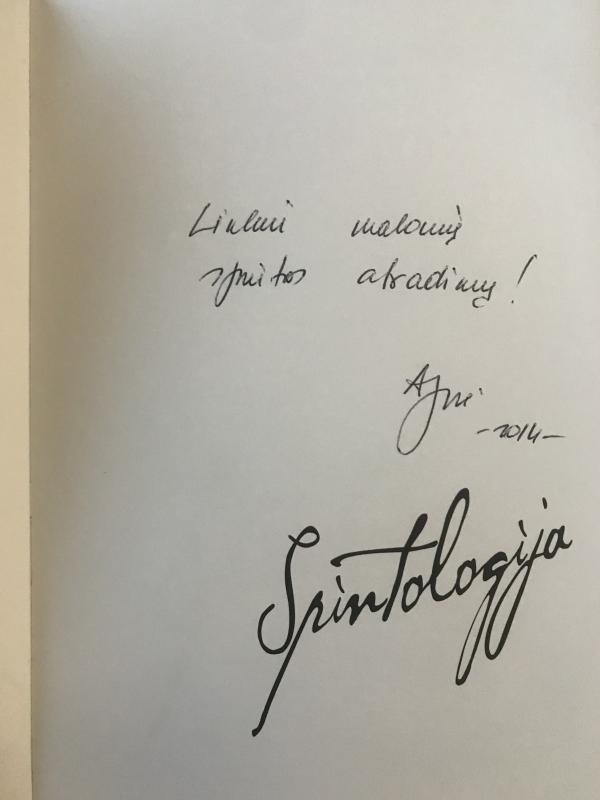 Linkiu malonių
spintos atradimų!
Agnė
-2014-
Spintologija